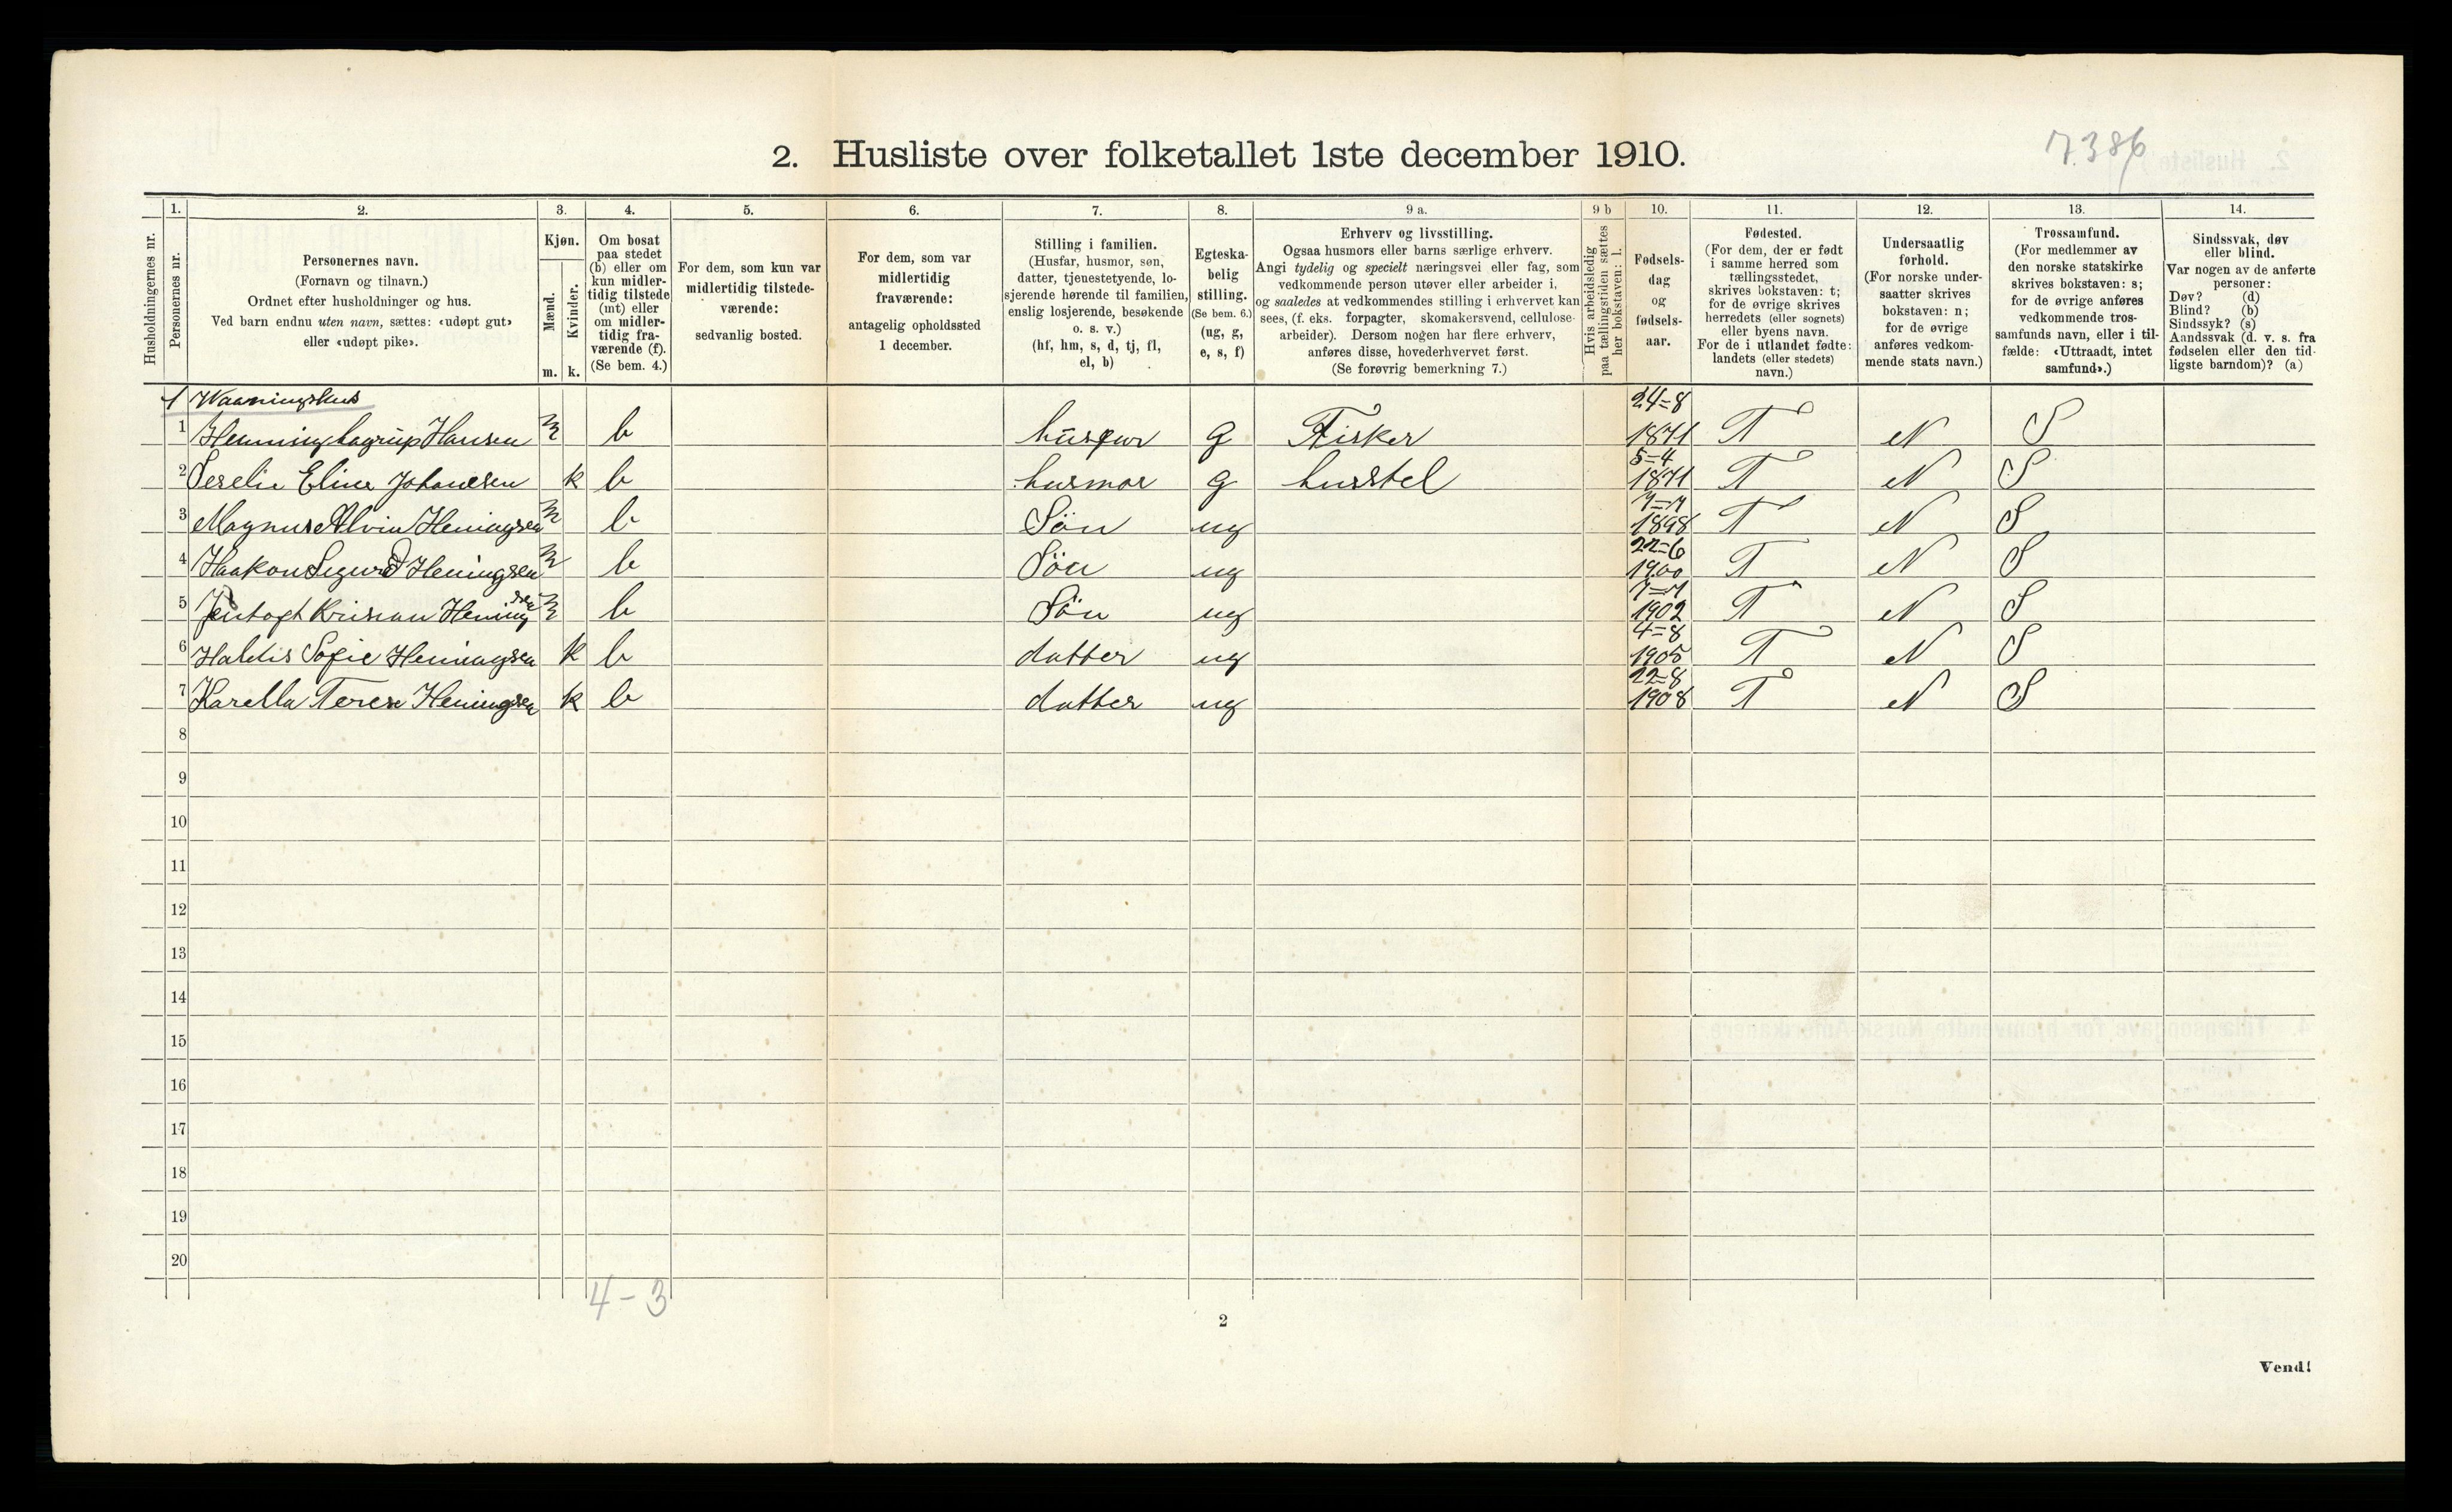 2. Husliste over folketallet 1ste december 1910.
7.386
1. 2. 3. 4. 5. 6. 7. 8. 9 a. 9 b 10. 11. 12. 13. 14.
Husholdningernes nr.
Personernes nr.
Personernes navn.
(Fornavn og tilnavn.)
Ordnet efter husholdninger og hus.
Ved barn endnu uten navn, sættes: «udøpt gut»
eller «udøpt pike».
Kjøn.
Mænd.
Kvinder.
m. k.
Om bosat
paa stedet
(b) eller om
kun midler-
tidig tilstede
(mt) eller
om midler-
tidig fra-
værende (f).
(Se bem. 4.)
For dem, som kun var
midlertidig tilstede-
værende:
sedvanlig bosted.
For dem, som var
midlertidig
fraværende:
antagelig opholdssted
1 december.
Stilling i familien.
(Husfar, husmor, søn,
datter, tjenestetyende, lo-
sjerende hørende til familien,
enslig losjerende, besøkende
o. s. v.)
(hf, hm, s, d, tj, fl,
el, b)
Egteska-
belig
stilling.
(Se bem. 6.)
(ug, g,
e, s, f)
Erhverv og livsstilling.
Ogsaa husmors eller barns særlige erhverv.
Angi tydelig og specielt næringsvei eller fag, som
vedkommende person utøver eller arbeider i,
og saaledes at vedkommendes stilling i erhvervet kan
sees, (f. eks. forpagter, skomakersvend, cellulose-
arbeider). Dersom nogen har flere erhverv,
anføres disse, hovederhvervet først.
(Se forøvrig bemerkning 7.)
Hvis arbeidsledig
paa tællingstiden sættes
her bokstaven: l.
Fødsels-
dag
og
fødsels-
aar.
Fødested.
(For dem, der er født
i samme herred som
tællingsstedet,
skrives bokstaven: t;
for de øvrige skrives
herredets (eller sognets)
eller byens navn.
For de i utlandet fødte:
landets (eller stedets)
navn.)
Undersaatlig
forhold.
(For norske under-
saatter skrives
bokstaven: n;
for de øvrige
anføres vedkom-
mende stats navn.)
Trossamfund.
(For medlemmer av
den norske statskirke
skrives bokstaven: s;
for de øvrige anføres
vedkommende tros-
samfunds navn, eller i til-
fælde: «Uttraadt, intet
samfund».)
Sindssvak, døv
eller blind.
Var nogen av de anførte
personer:
Døv? (d)
Blind? (b)
Sindssyk? (s)
Aandssvak (d. v. s. fra
fødselen eller den tid-
ligste barndom)? (a)
1 Waaningshus
24=8
1 Henning Hansen m b husfar g Fisker 1871 T N S
5=4
2 Eline Johansen k b husmor g husstel 1871 T N S
7=7
3 Magnus Alvin Heningsen m b Sön ug 1898 T N S
22=6
4 Haakon Sigurd Heningsen m b Sön ug 1900 T N S
7=7
5 Jentoft Krisian Heningsen m b Sön ug 1902 T N S
4=8
6 Haldis Sofie Heningsen k b datter ug 1905 T N S
22=8
7 Karella Terese Heningsen k b datter ug 1908 T N S
8
9
10
11
12
13
14
15
16
17
18
19
20
4-3
2
Vend!